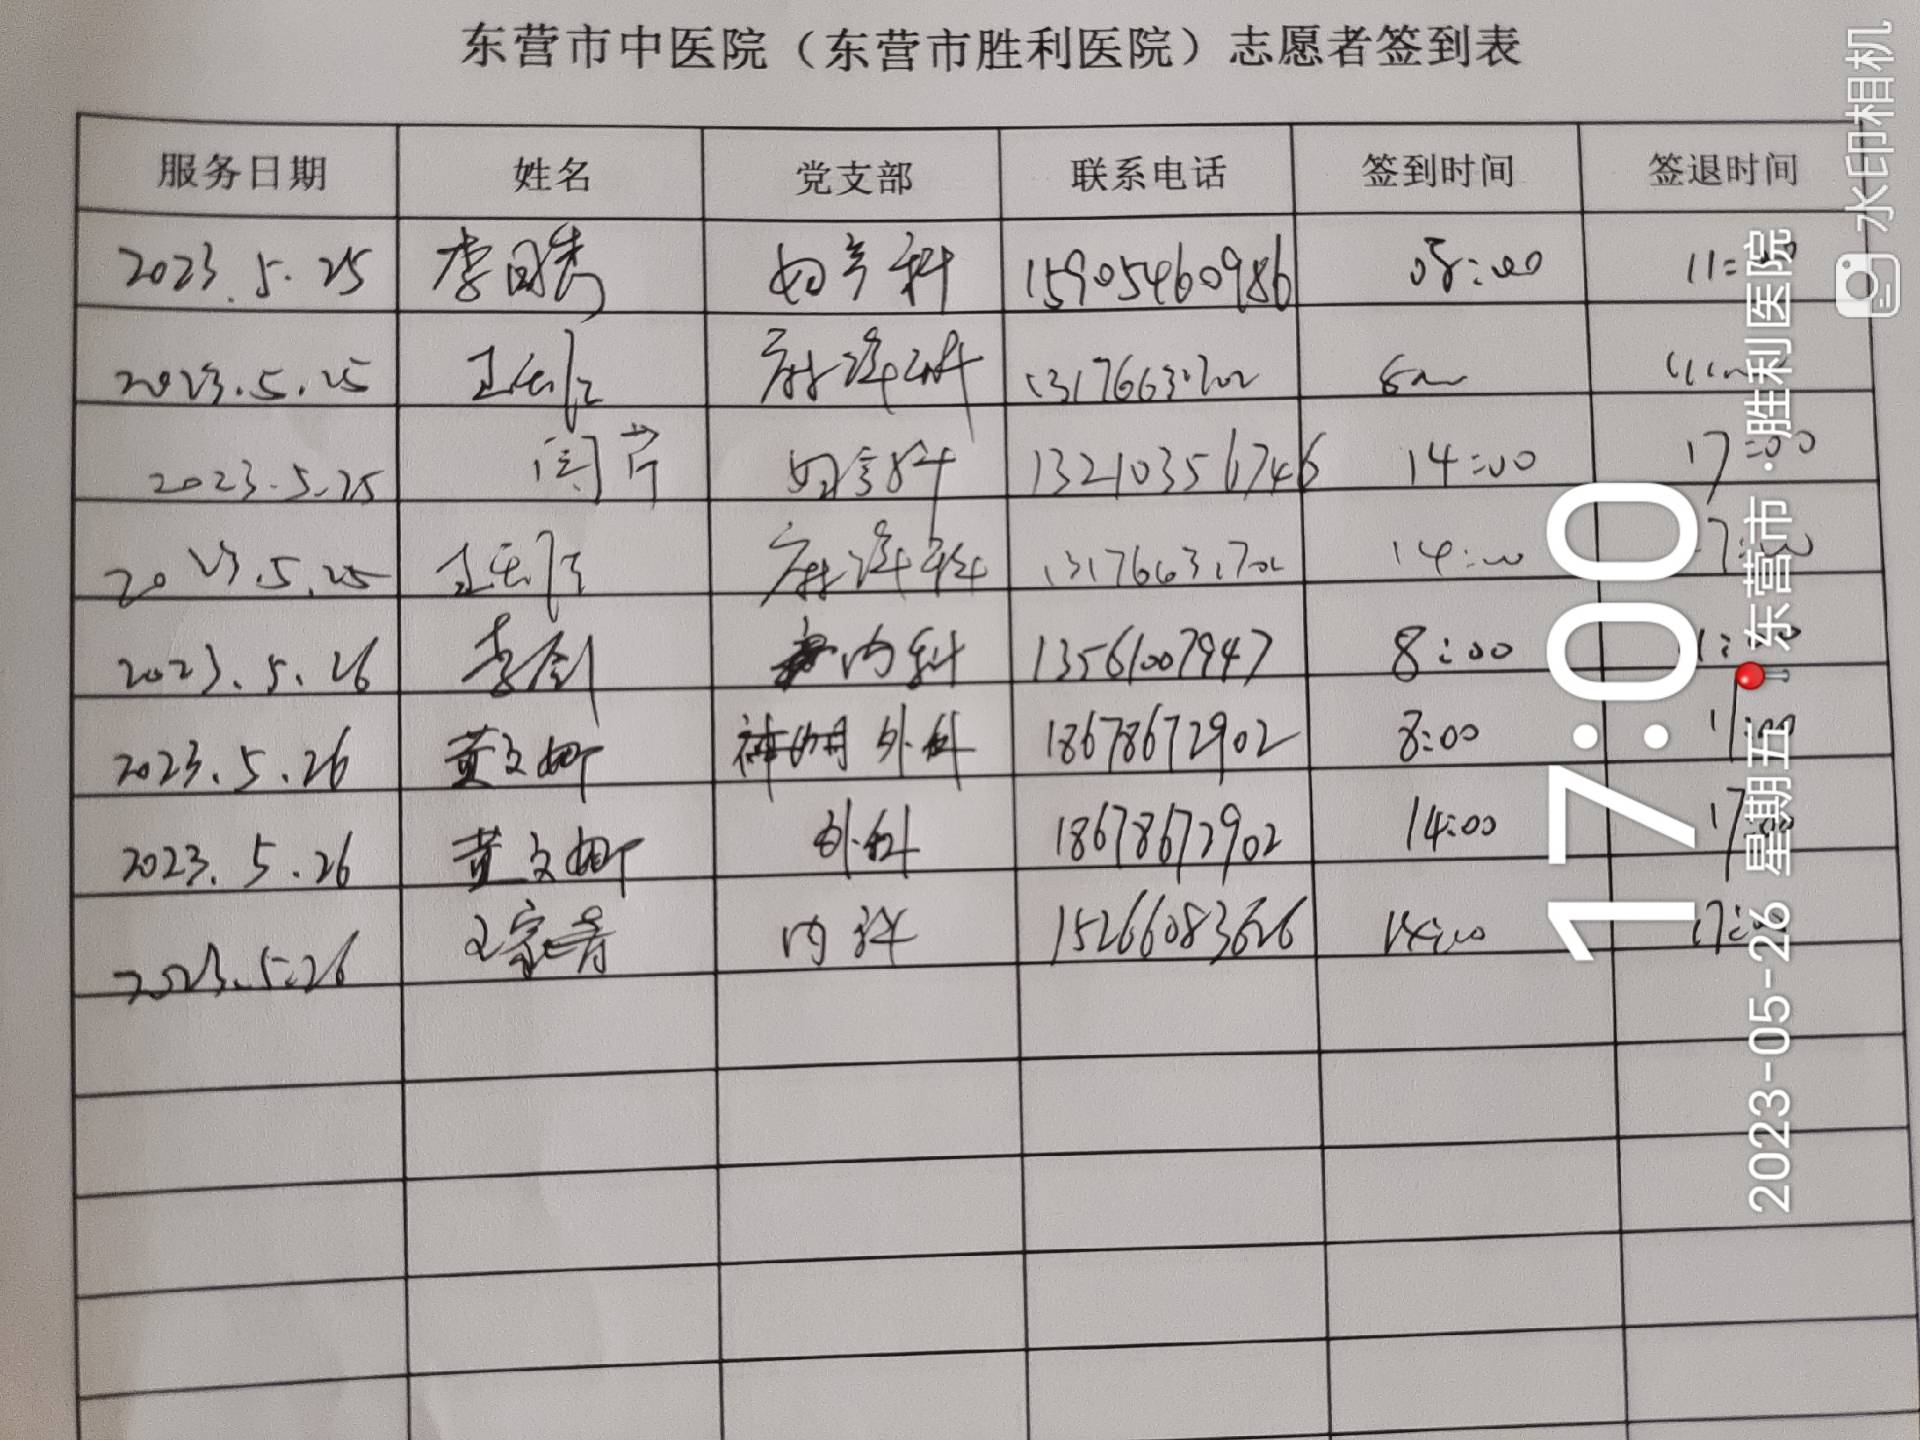 东营市中医院（东营市胜利医院）志愿者签到表
服务日期 姓名 党支部 联系电话 签到时间 签退时间
2023.5.25 李国秀 妇产科 15905460986 08:00 11:00
2023.5.25 麻醉科
2023.5.25 闫芹 妇产科 13210356746 14:00 17:00
2023.5.25 麻醉科 14:00 17:00
2023.5.26 李剑 内科 13561007947 8:00
2023.5.26 黄文娜 外科 18678672902 8:00 11:00
2023.5.26 黄文娜 外科 18678672902 14:00 17:00
2023.5.26 内科 15266083626 14:00 17:00
水印相机
17:00
2023-05-26 星期五 东营市·胜利医院